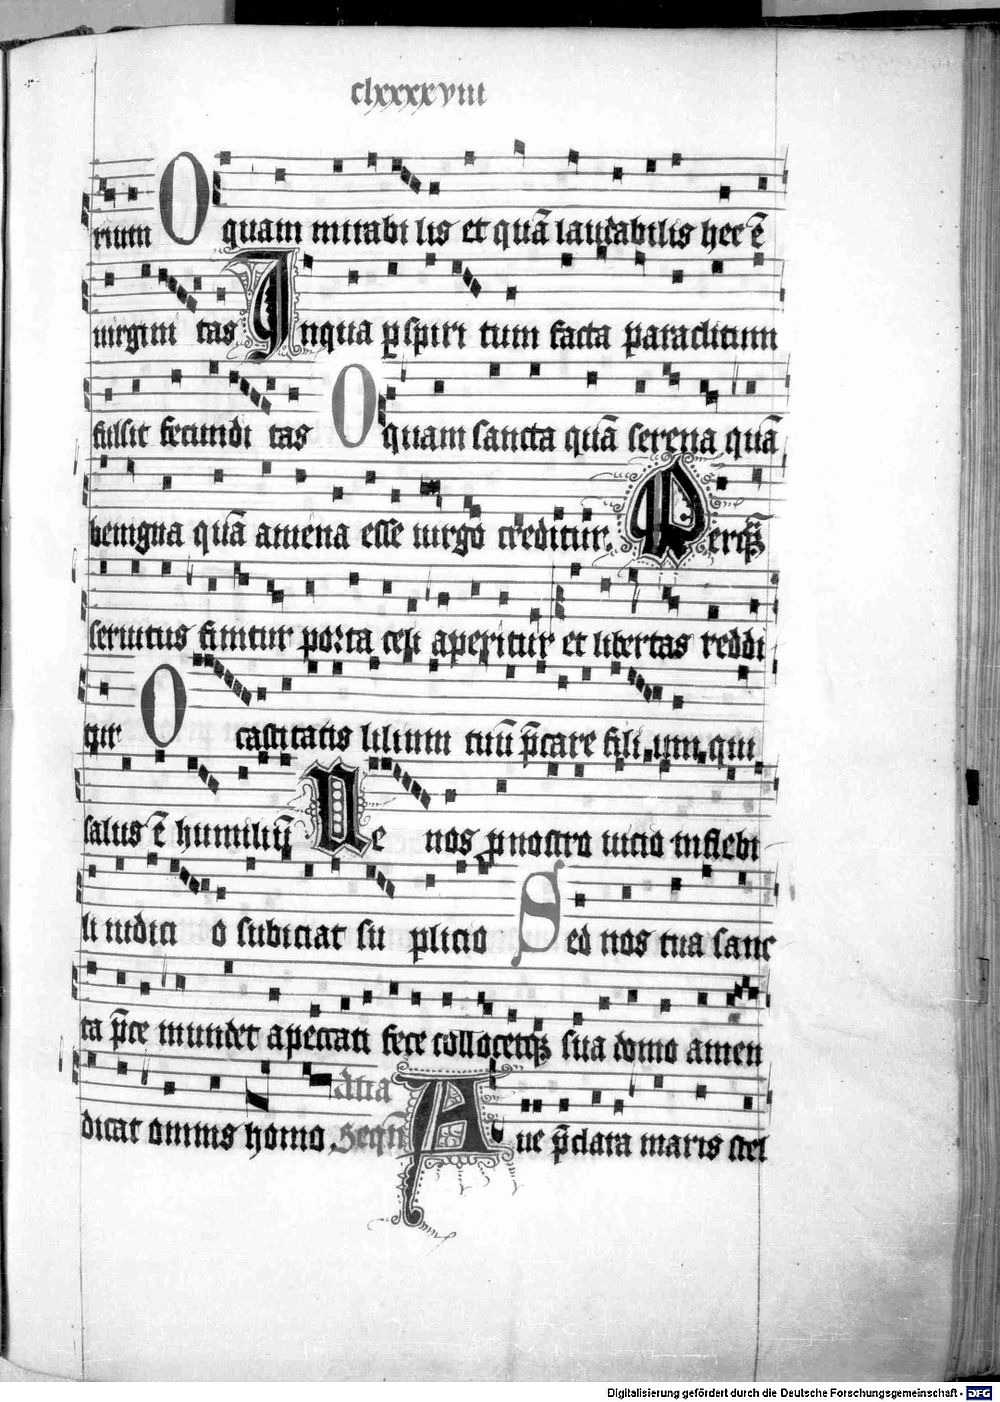 clxxxxviii
rium O quam mirabi lis et quā laudabilis hec ē
uirgini tas In qua ꝑ spiri tum facta paraclitum
fulsit fecundi tas O quam sancta quā serena quā
benigna quā amena esse uirgo creditur. Per q̄ꝫ
seruitus finitur porta celi aperitur et libertas reddi
tur O castitatis lilium tuū p̄care fili um qui
salus ē humiliū Ne nos ꝓ nostro uicio in flebi
li iudici o subiciat su plicio Sed nos tua sanc
ta p̄ce mundet a peccati fece collocetqꝫ sua domo amen
dicat omnis homo. Seqn̄ Alia Aue p̄clara maris stel
Digitalisierung gefördert durch die Deutsche Forschungsgemeinschaft - DFG